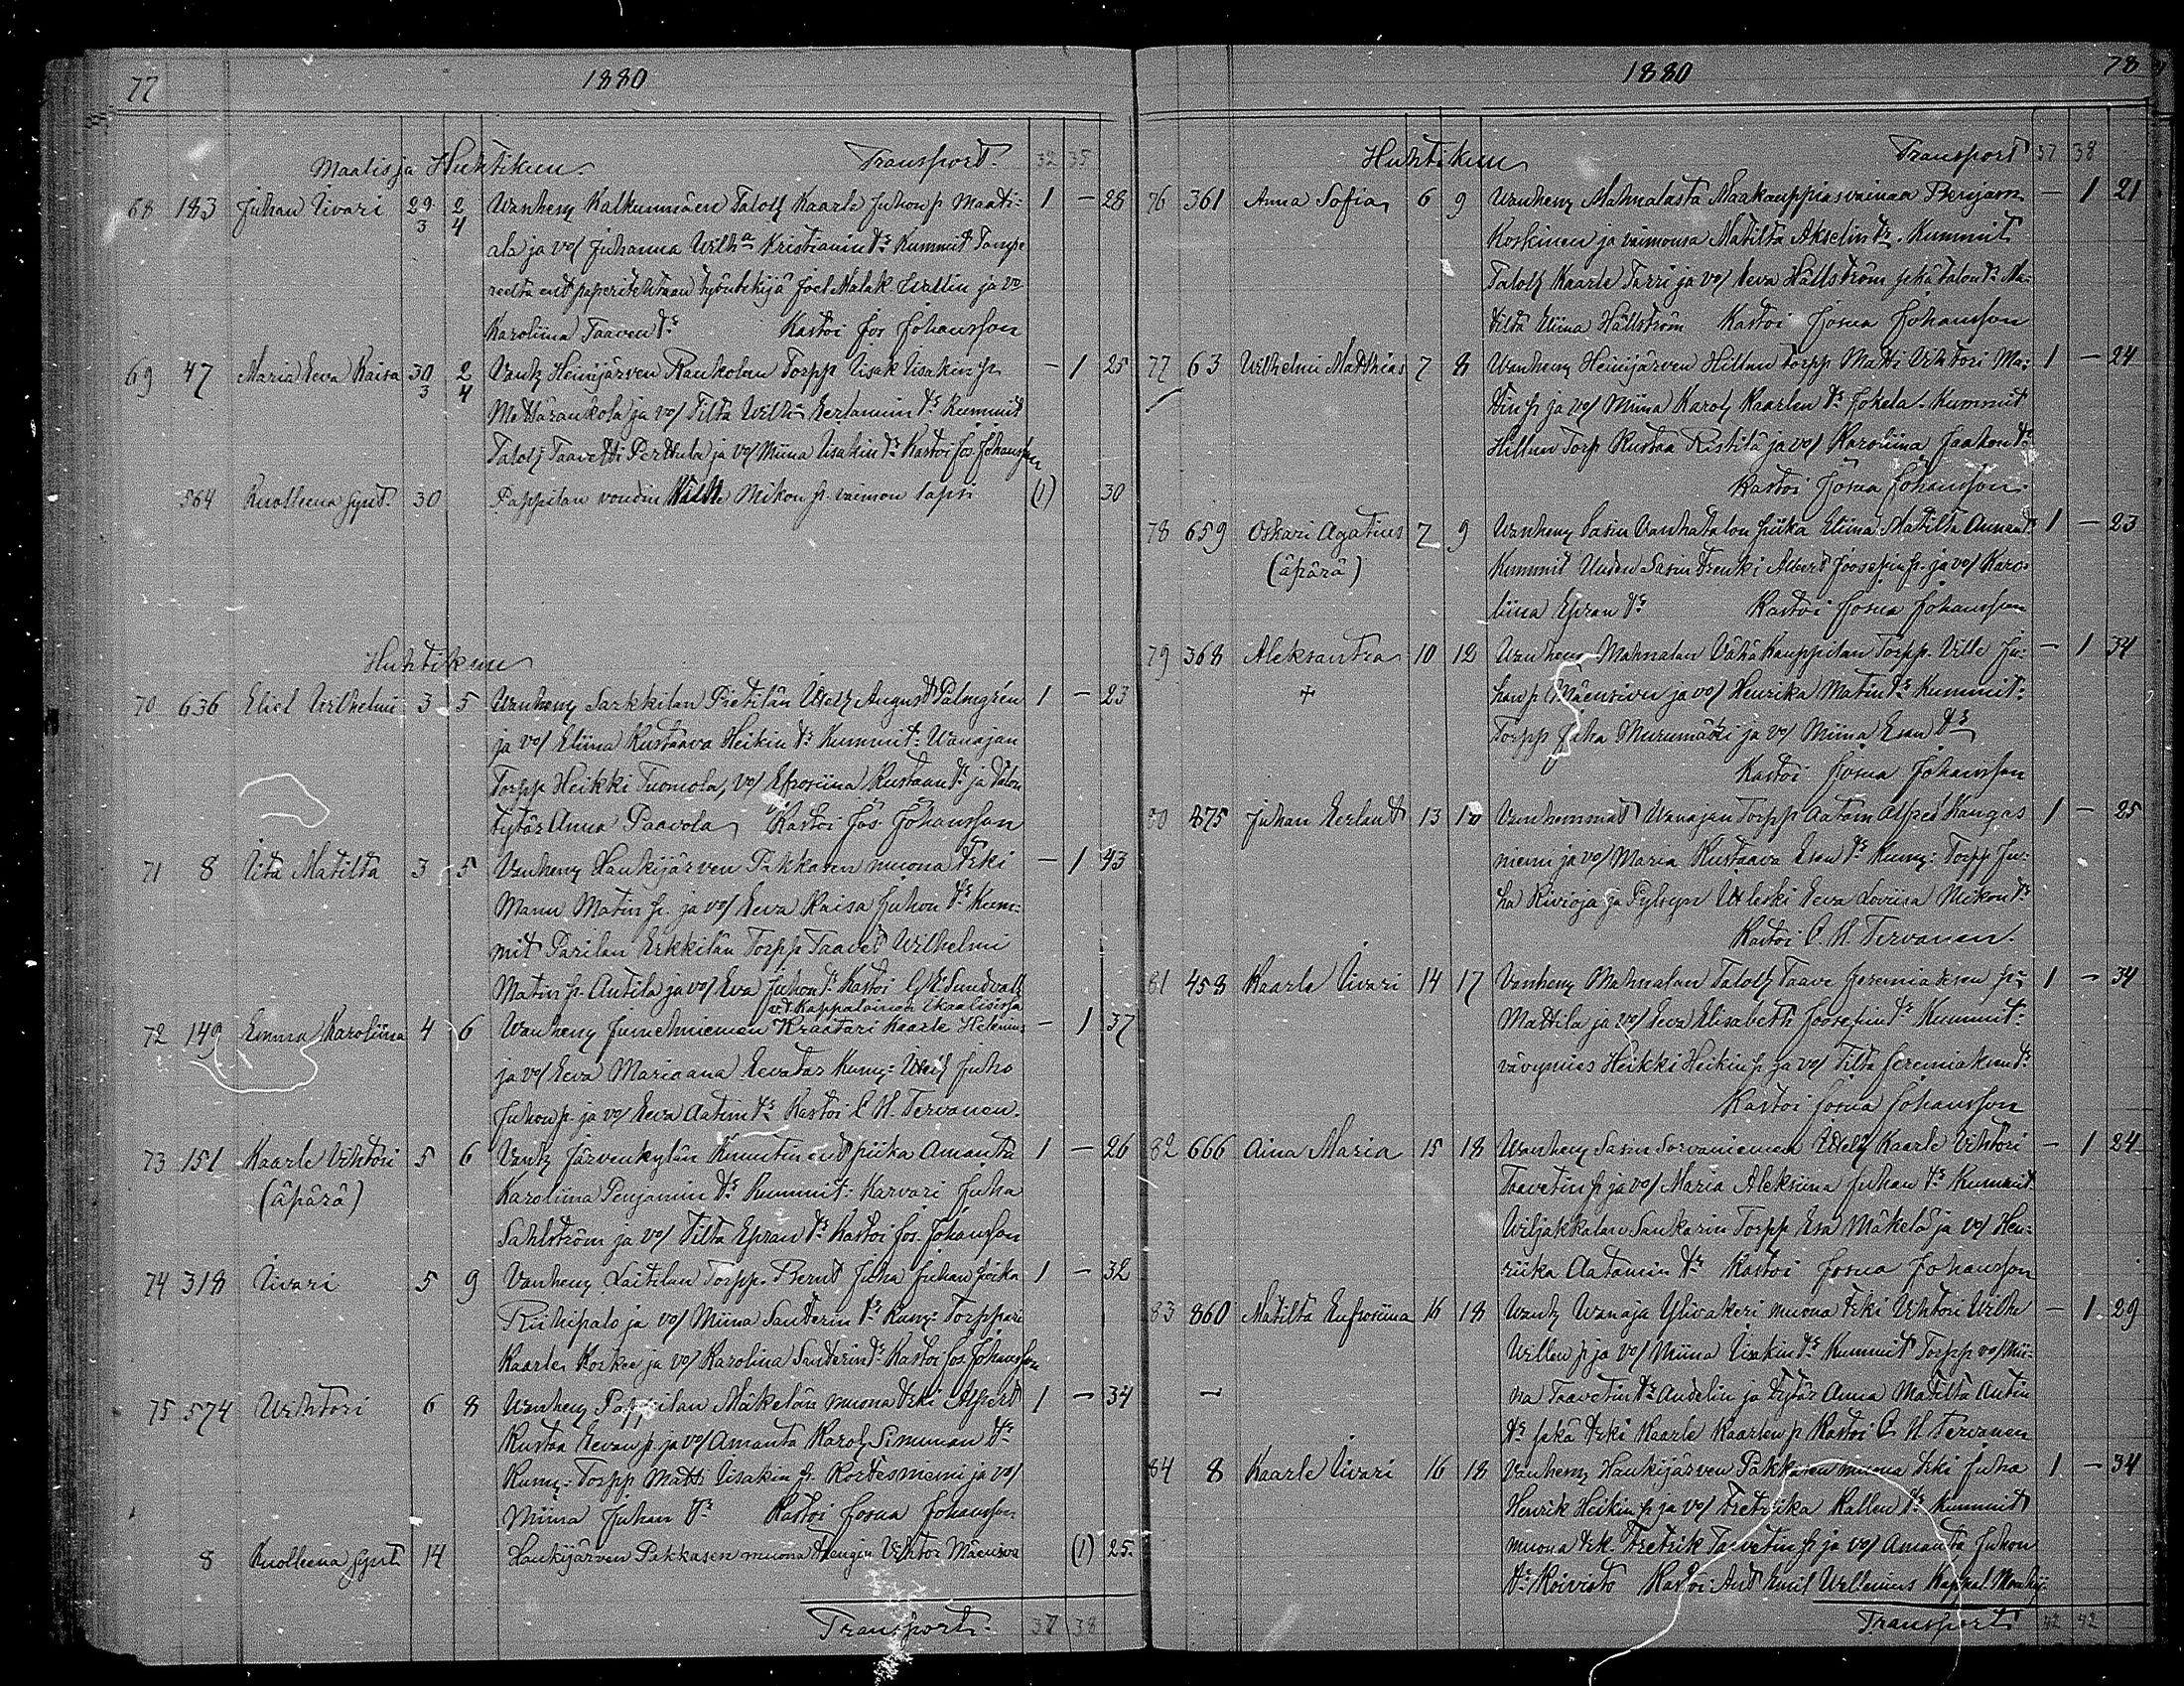 77 1880
Maalis ja Huhtikuu Transport 32 35
68 183 Juhan Iivari 29/3 2/4 Vanhem Kalkunmäen Talolj Kaarle Juhonp. Maati= 1 — 28
ala ja vo/ Juhanna Wilhna Kristianin tr Kummit Tampe
reelta ent paperitehtaan työntekijä Joel Malak. Wallin ja vo
Karoliina Taaven tr Kastoi Jos Johansson
69 47 Maria Eeva Kaisa 30/3 2/4 Vanh Heinijärven Raukolan Torpp Iisak Iisakin p. — 1 25
Mettäraukola ja vo/ Tilta Wilhna Eerlannin tr Kummit
Talolj Taavetti Perttula ja vo/ Miina Iisakin tr Kastoi Jos. Johansson
564 Kuolleena synt. 30 Pappilan voudin Wille Mikon p. vaimon lapsi (1) 30
Huhtikuu
70 636 Eliel Wilhelmi 3 5 Vanhem Sarkkilan Pietilän Itsell August Palmgrén 1 — 23
ja vo/ Eliina Kustaava Heikin tr Kummit: Wanajan
Torpp Heikki Tuomola, vo/ Efrosiina Kustaan tr ja talon
tytär Anna Paavola Kastoi Jos Johansson
71 8 Iita Matilta 3 5 Vanhem Haukijärven Pakkasen muona trki — 1 43
Manu Matin p. ja vo/ Eeva Kaisa Juhon tr Kum=
mit Parilan Erkkilän Torpp Taavet Wilhelmi
Matin p. Antila ja vo/ Eva Juhon tr Kastoi G. E. Sundvall
v.t. Kappalainen Ikaalisissa
72 149 Emma Karoliina 4 6 Vanhem Jumelniemen Kraatari Kaarle Helenius — 1 37
ja vo/ Eeva Mariaana Eevatar Kumm: Itsell Juho
Juhon p. ja vo/ Eeva Aatin tr Kastoi C. H. Tervanen.
73 151 Kaarle Wihtori 5 6 Vanh Järvenkylän Knuutin ent piika Amanta 1 — 26
(äpärä) Karoliina Penjamin tr Kummit: Karvari Juha
Sahlström ja vo/ Tilta Epran tr Kastoi Jos. Johansson
74 318 Iivari 5 9 Vanhem Laitilan Torpp. Pernt Juha Juhan poika 1 — 32
Riihipalo ja vo/ Miina Santerin tr Kumm: Torppari
Kaarle Koskee ja vo/ Karolina Santerin tr Kastoi Jos. Johansson
75 574 Wihtori 6 8 Vanhem Pappilan Mäkelän muona trki Alfert 1 — 34
Kustaa Eevan p. ja vo/ Amanta Karol Simunan tr
Kumm: Torpp Matti Iisakin p. Kortesniemi ja vo/
Miina Juhan tr Kastoi Josua Johansson
8 Kuolleena synt. 14 Haukijärven Pakkasen muona trengin Wihtor Mäensivu (1) 25
Transport. 37 38
1880 78
Huhtikuu Transport 37 38
76 361 Anna Sofia 6 9 Vanhem Mahnalasta Maakauppias vainaa Benjam — 1 21
Koskinen ja vaimonsa Matilta Akselin tr. Kummit
Talolj Kaarle Tarri ja vo/ Eeva Hällström sekä talon tr Ma=
tilta Eliina Hällström Kastoi Josua Johansson
77 63 Wilhelmi Matthias 7 8 Vanhem Heinijärven Hillun Torpp Matti Wihtori Ma= 1 — 24
tin p ja vo/ Miina Karol Kaarlen tr Jokela. Kummit
Hillun Torp Kustaa Ristilä ja vo/ Karoliina Jaakon tr
Kastoi Josua Johansson.
78 659 Oskari Agatius 7 9 Vanhem Sasin Vanhatalon piika Eliina Matilta Annan tr 1 — 23
(äpärä) Kummit Uuden Sasin trenki Albert Joosepin p. ja vo/ Karo=
liina Epran tr Kastoi Josua Johansson
79 368 Aleksantra 10 12 Vanhem Mahnalan Vähä Kauppilan Torpp. Wille Ju= — 1 34
+ han p. Mäensivu ja vo/ Henrika Matin tr Kummit:
Torpp Juha Murumäki ja vo/ Miina Esan tr
Kastoi Josua Johansson
80 875 Juhan Eerlant 13 18 Vanhemmat Wanajan Torpp Aatam Alfred Kangas 1 — 25
niemi ja vo/ Maria Kustaava Esan tr Kumm: Torpp Ju=
ha Kivioja ja Pylsyn Itleski Eeva Loviisa Mikon tr
Kastoi C. H. Tervanen.
81 458 Kaarle Iivari 14 17 Vanhem Mahnalan Talolj Taave Jeremiaksen p: 1 — 34
Mattila ja vo/ Eeva Elisabeth Joosepin tr Kummit:
vävymies Heikki Heikin p. ja vo/ Tilta Jeremiaksen tr
Kastoi Josua Johansson
82 666 Aina Maria 15 18 Vanhem Sasin Sorvaniemen Itsell Kaarle Wihtori — 1 24
Taavetin p. ja vo/ Maria Aleksiina Juhan tr Kummit
Wiljakkalan Sankarin Torpp Esa Mäkelä ja vo/ Hen=
riika Aatamin tr Kastoi Josua Johansson
83 860 Matilta Eufrosiina 16 18 Vanh Wanaja Ylivakeri muona trki Wihtori Wilhe — 1 29
Willen p. ja vo/ Miina Iisakin tr Kummit Torpp vo/ Mii=
— na Taavetin tr Andelin ja tytär Anna Matilta Antin
tr sekä trki Kaarle Kaarlen p Kastoi C. H. Tervanen
84 8 Kaarle Iivari 16 18 Vanhem Haukijärven Pakkasen muona trki Juha 1 — 34
Henrik Heikin p. ja vo/ Fretriika Kallen tr Kummit
muona trk. Fretrik Taavetin p. ja vo/ Amanta Juhon
tr Koivisto Kastoi Ant Emil Wellenius Kappal.
Transport 42 42